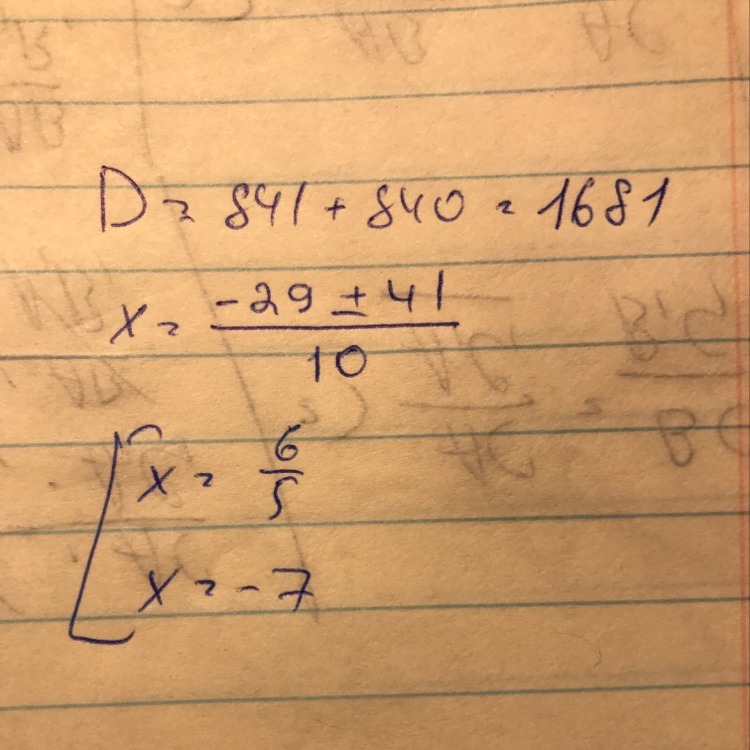 D = 841 + 840 = 1681
x = (-29 ± 41)/10
[ x = 6/5
x = -7